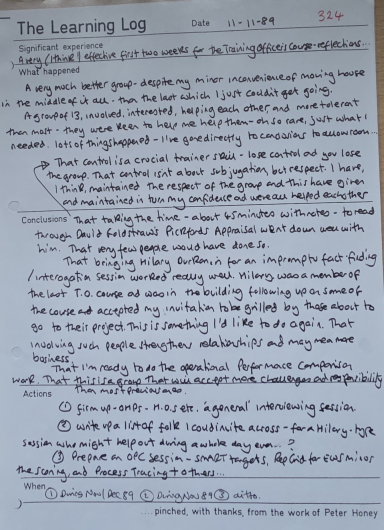 The Learning Log Date 11-11-89 324
Significant experience
A very (I think) effective first two weeks for the Training Officers Course - reflections...
What happened
A very much better group - despite my minor inconvenience of moving house
in the middle of it all - than the last which I just couldn't get going.
A group of 13, involved, interested, helping each other and more tolerant
than most - they were keen to help me help them - oh so rare, just what I
needed. Lots of things happened - I've gone directly to conclusions to allow room...
That control is a crucial trainer skill - lose control and you lose
the group. That control isn't about subjugation, but respect. I have,
I think, maintained the respect of the group and this have given
and maintained in turn my confidence and we've all helped each other
Conclusions That taking the time - about 45 minutes with notes - to read
through David Goldstraw's Pickfords Appraisal went down well with
him. That very few people would have done so.
That bringing Hilary in for an impromptu fact finding
/interrogation session worked really well. Hilary was a member of
the last T.O. Course and was in the building following up on some of
the course and accepted my invitation to be grilled by those about to
go to their project. This is something I'd like to do again. That
involving such people strengthens relationships and may mean more
business.
That I'm ready to do the Operational Performance Comparison
work. That this is a group that will accept more challenges and responsibility
than most previous ones.
Actions
① firm up - OHPs - H.O.s etc. 'a general' interviewing session
② write up a list of folk I could invite across - for a Hilary-type
session who might help out during a whole day even... ?
③ Prepare an OPC session - SMART targets, Rep Grid for EWS minus
the scoring, and Process Tracing + others...
When ① During Nov/Dec 89 ② During Nov 89 ③ ditto.
....pinched, with thanks, from the work of Peter Honey